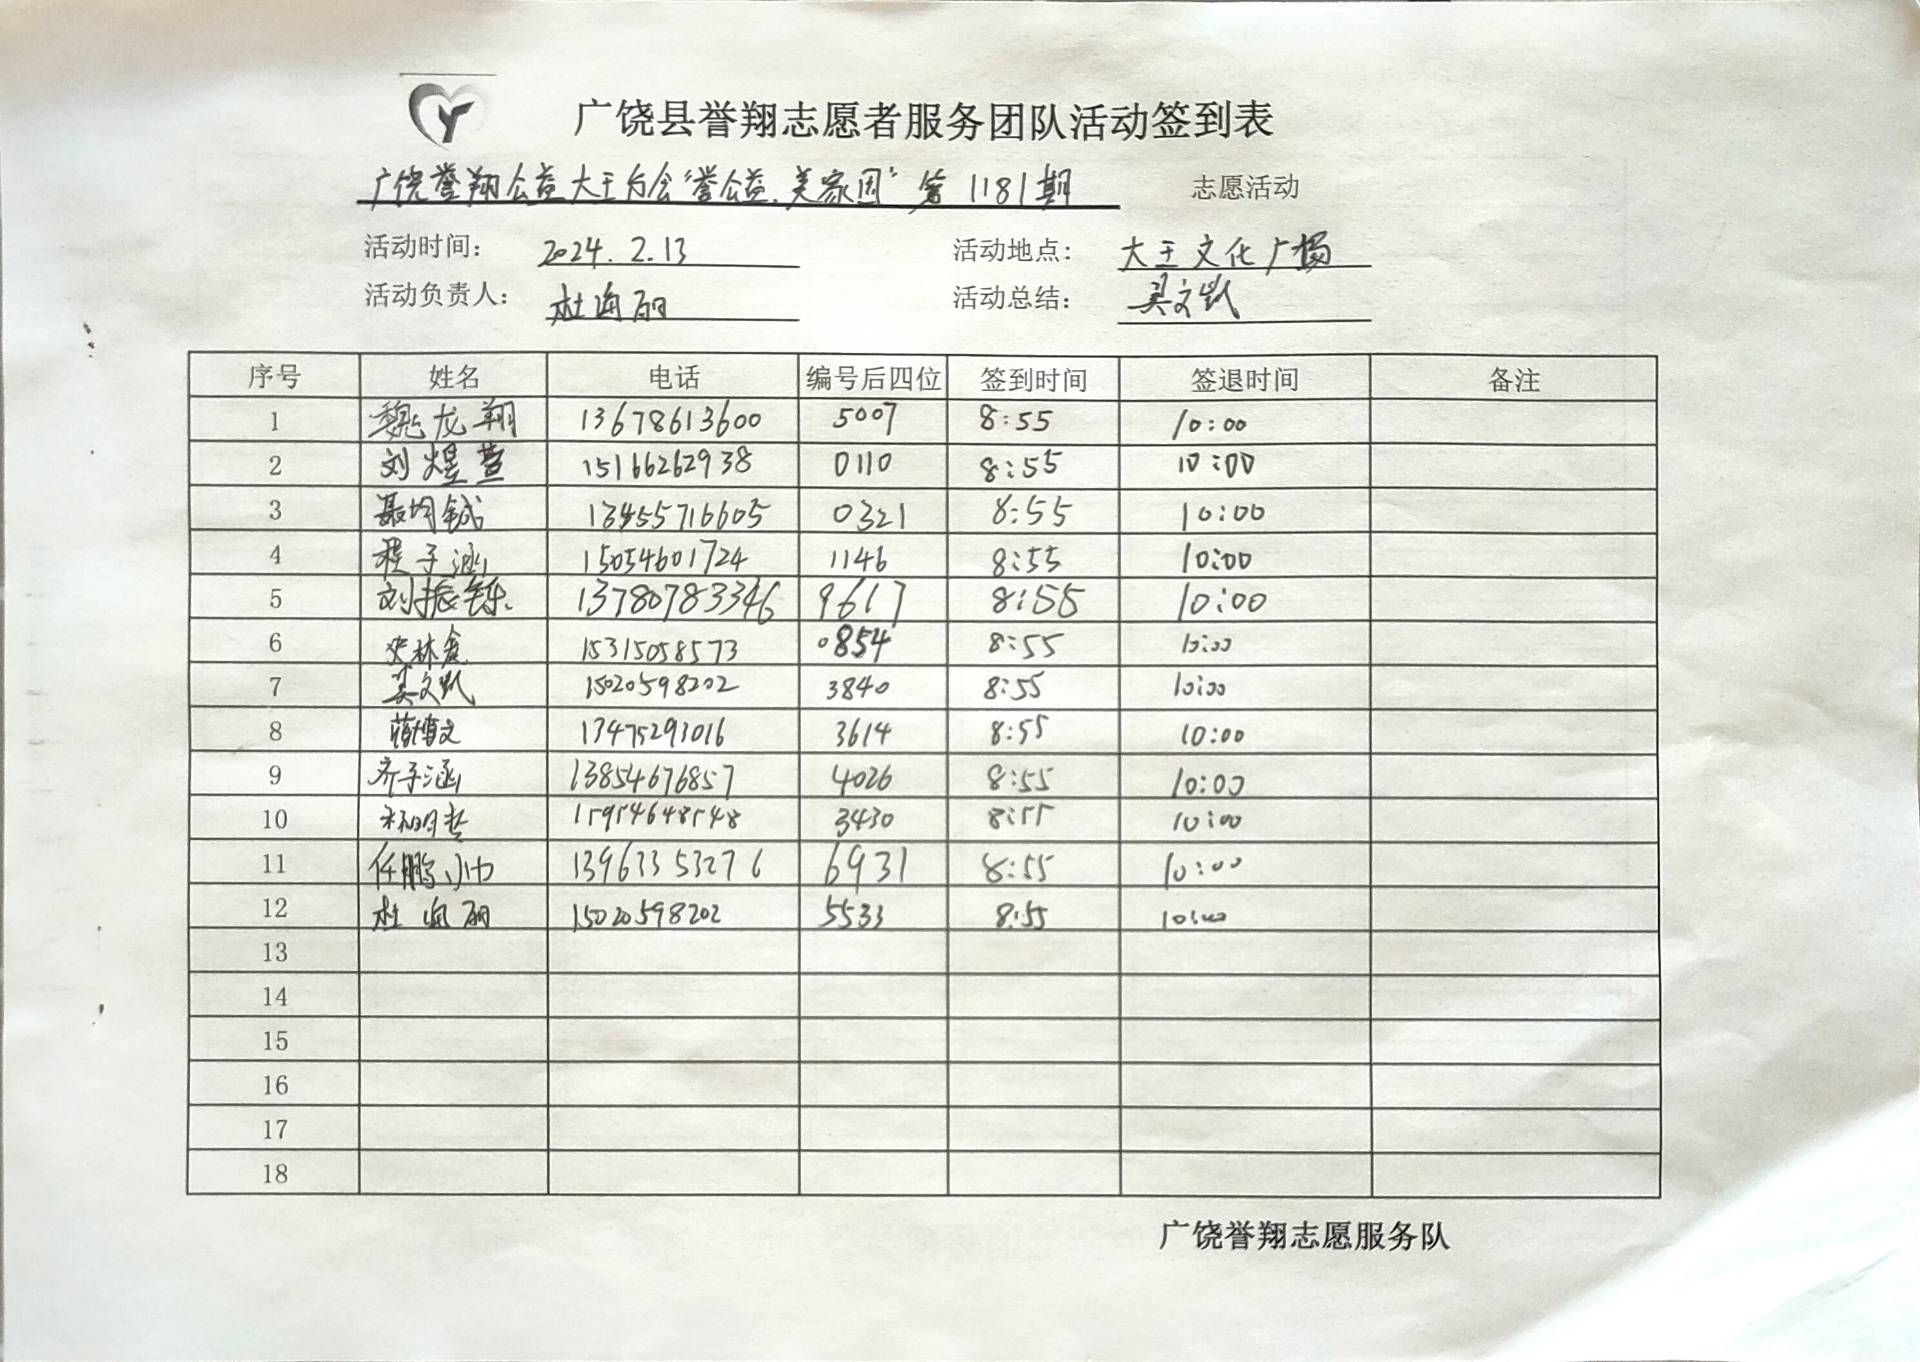 广饶县誉翔志愿者服务团队活动签到表
广饶誉翔公益大王分会"誉公益.美家园"第1181期 志愿活动
活动时间： 2024.2.13 活动地点： 大王文化广场
活动负责人： 杜海丽 活动总结： 吴文凯
序号 姓名 电话 编号后四位 签到时间 签退时间 备注
1 魏龙翔 13678613600 5007 8:55 10:00
2 刘煜萱 15166262938 0110 8:55 10:00
3 聂均铖 13455716605 0321 8:55 10:00
4 程子涵 15054601724 1146 8:55 10:00
5 刘振铄 13780783346 9617 8:55 10:00
6 林鑫 15315058573 0854 8:55 10:00
7 吴文凯 15020598202 3840 8:55 10:00
8 蒋博文 13475293016 3614 8:55 10:00
9 齐子涵 13854676857 4026 8:55 10:00
10 15954648548 3430 8:55 10:00
11 任鹏帅 13963353276 6931 8:55 10:00
12 杜海丽 15020598202 5533 8:55 10:00
13
14
15
16
17
18
广饶誉翔志愿服务队